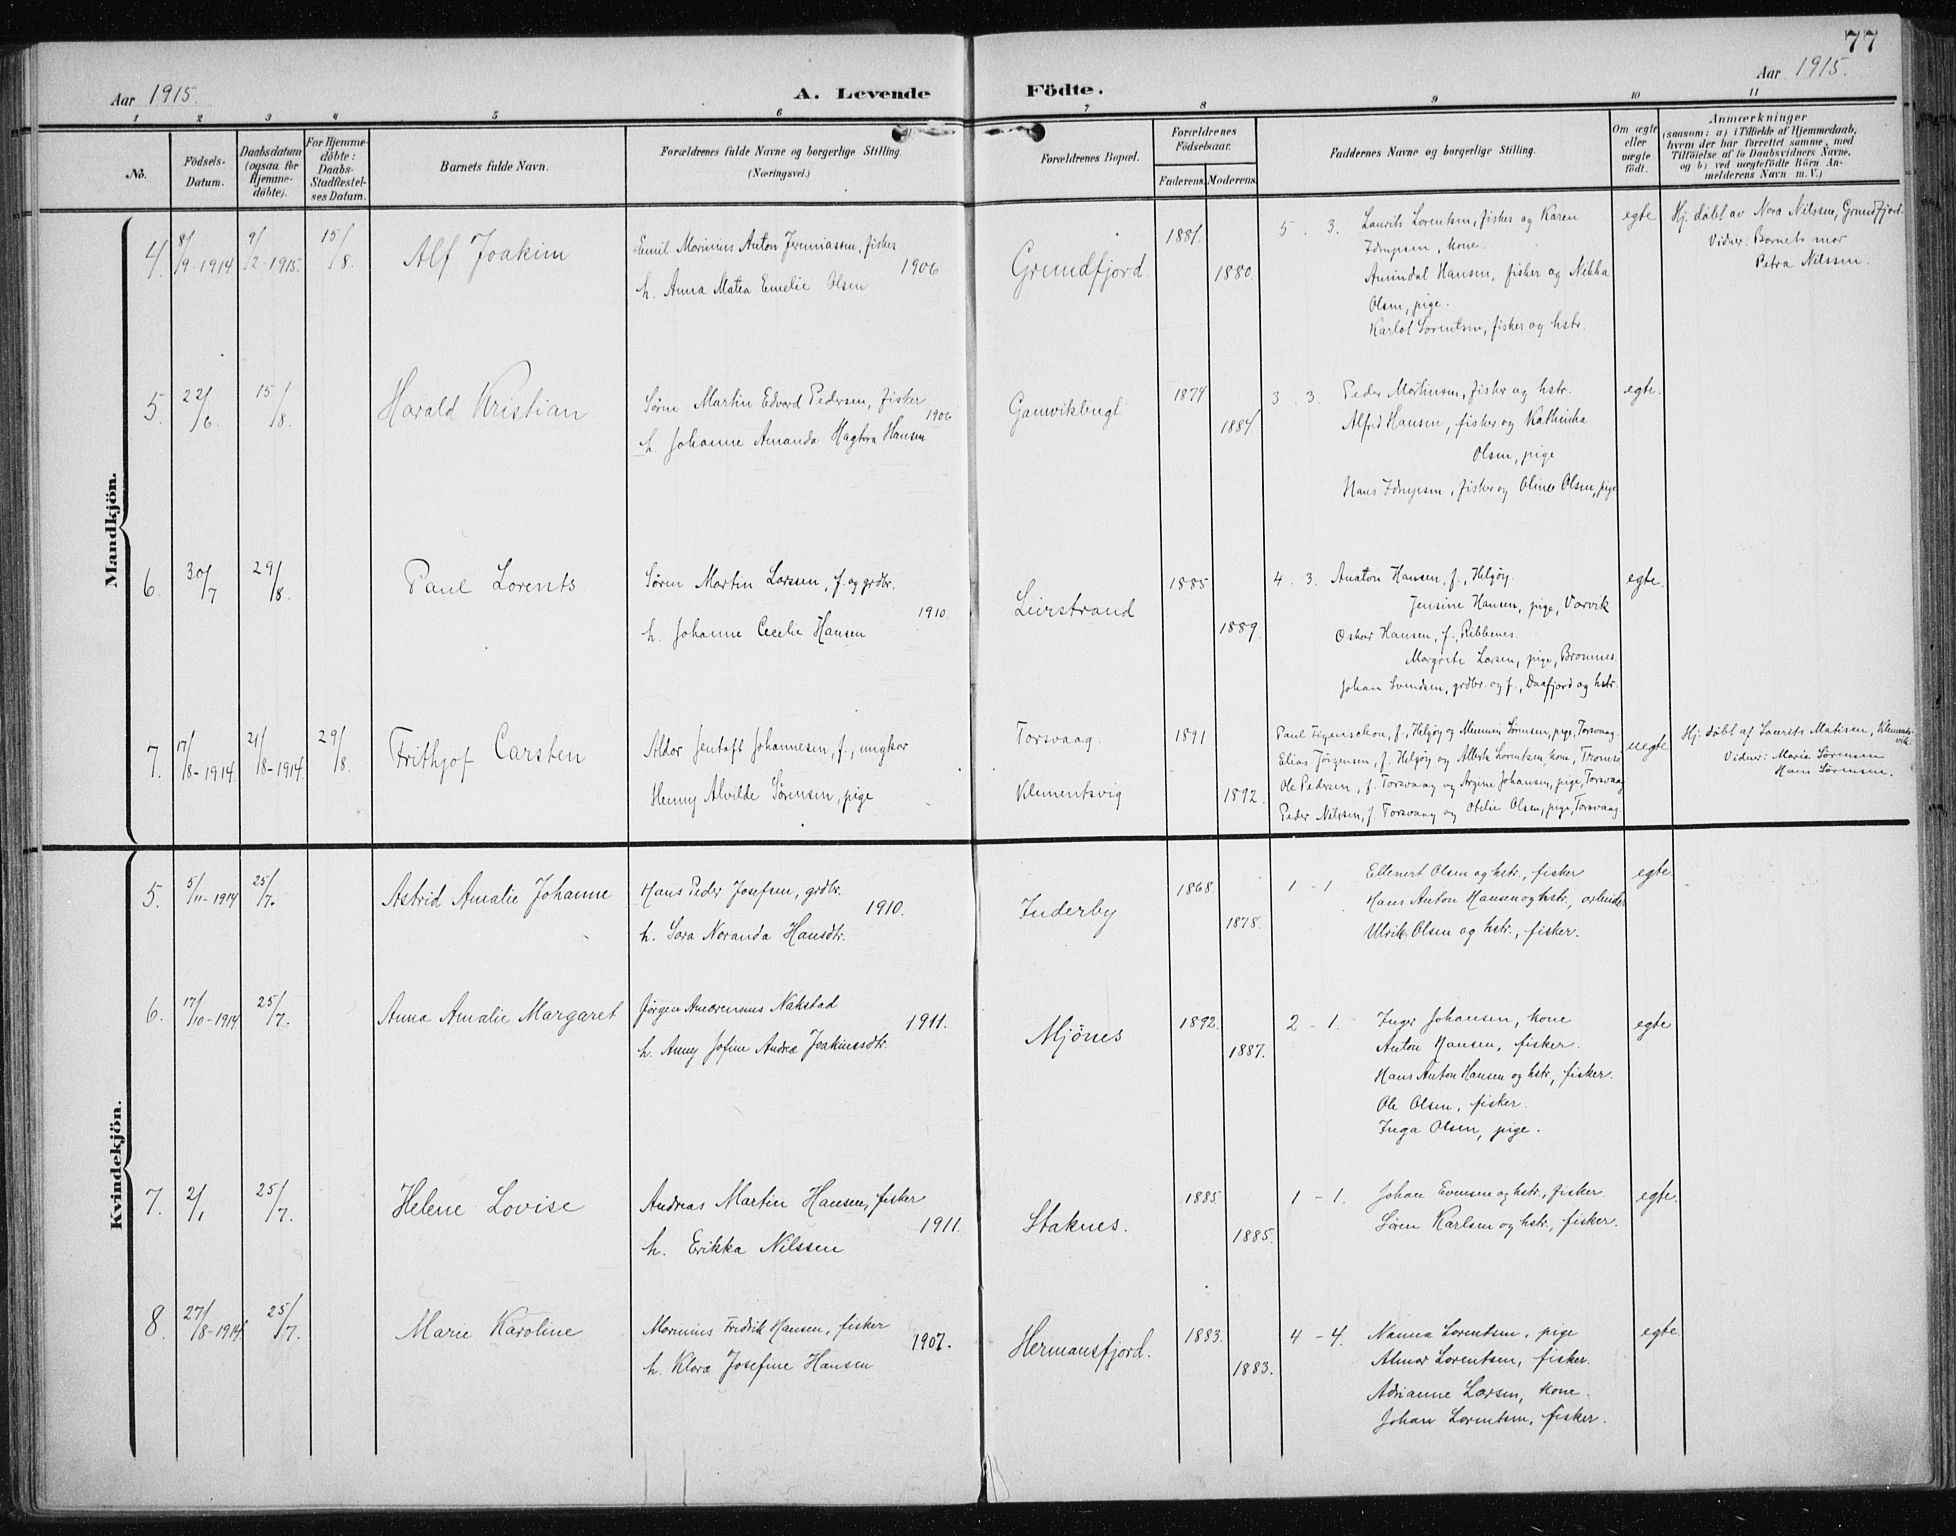 77
Aar 1915.
A. Levende Födte.
Aar 1915.
1 2 3 4 5 6 7 8 9 10 11
No.
Födsels-Datum.
Daabsdatum (ogsaa for Hjemme-döbte).
For Hjemme-döbte: Daabs-Stadfæstel-ses Datum.
Barnets fulde Navn.
Forældrenes fulde Navne og borgerlige Stilling.
(Næringsvei.)
Forældrenes Bopæl.
Forældrenes Födselsaar.
Faderens. Moderens.
Faddernes Navne og borgerlige Stilling.
Om ægte eller uægte födt.
Anmærkninger
(saasom: a) i Tilfælde af Hjemmedaab,
hvem der har forrettet samme, med
Tilföielse af to Daabsvidners Navne,
og b) ved uægtefödte Börn An-
melderens Navn m. V.)
Mandkjön.
4. 8/9-1914 9/2-1915. 15/8. Alf Joakim
Emil Marinius Anton Jremiassen, fisker
h. Anna Matea Emelie Olsen 1906
Grundfjord. 1881. 1880.
5. 3. Laurits Lorentsen, fisker og Karen
kone.
Amindal Hansen, fisker og Nikka
Olsen, pige.
Karlot Lorentsen, fisker og hstr.
egte
Hj. döbt av Nora Nilssen, Grundfjord.
Vidner: Barnets mor
Petra Nilssen.
5. 22/6. 15/8. Harald Kristian
Søren Martin Edvard Pedersen, fisker
h. Johanne Amanda Hagbora Hansen 1906
Gamvikbugt 1874 1884.
3. 3. Peder Mortensen, fisker og hstr.
Alfred Hansen, fisker og Kathinka
Olsen, pige
Hans fisker og Oline Olsen, pige
egte.
6. 30/7 29/8. Paul Lorents
Søren Martin Larsen, f. og grdbr.
h. Johanne Cecelie Hansen 1910.
Leirstrand 1885 1889.
4. 3. Anaton Hansen, f., Helgøy.
Jensine Hansen, pige, Vorvik
Oskar Hansen, f., Ribbenes.
Margrete Larsen, pige, Bromnes.
Johan Svendsen, grdbr. og f., Daafjord og hstr.
egte.
7. 17/8-1914. 21/8-1914. 29/8. Frithjof Carsten
Aldor Jentoft Johannesen, f., ungkar
Henny Alvilde Sørensen, pige
Torsvaag. Klementsvig
1891 1892.
Paul f., Helgøy og Sørensen, pige, Torsvaag.
Elias Jörgensen, f. Helgøy og Alberte Lorentsen, kone, Tromsø
Ole Pedersen, f. Torsvaag og Argine Johansen, pige, Torsvaag
Peder Nilssen, f. Torsvaag og Otelie Olsen, pige, Torsvaag.
uegte
Hj. döbt af Laurits Matisen, Klements-
vik.
Vidner: Marie Sørensen
Hans Sørensen.
Kvindekjön.
5. 5/11-1914 25/7. Astrid Amalie Johanne
Hans Peder Josefsen, grdbr.
h. Sara Noranda Hansdtr. 1910.
Inderby 1868 1878.
1-1. Ellenert Olsen og hstr., fisker
Hans Anton Hansen og hstr., arbeider
Ulrik Olsen og hstr., fisker.
egte
6. 17/10-1914. 25/7. Anna Amalie Margaret
Jørgen Nakstad
h. Anny Jofine Andrea Joakimsdtr. 1911.
Mjönes 1892. 1887.
2-1. Inger Johansen, kone
Anton Hansen, fisker.
Hans Anton Hansen og hstr., fisker.
Ole Olsen, fisker.
Inga Olsen, pige.
egte
7. 2/1 25/7. Helene Lovise
Andreas Martin Hansen, fisker
h. Erikka Nilssen 1911.
Staknes. 1885 1885.
1-1. Johan Evensen og hstr., fisker.
Søren Karlsen og hstr., fisker.
egte.
8. 27/8-1914. 25/7. Marie Karoline
Marinius Fredrik Hansen, fisker
h. Klara Josefine Hansen 1907.
Hermansfjord. 1883. 1883.
4-4. Nanna Lorentsen, pige
Almar Lorentsen, fisker.
Adrianne Larsen, kone.
Johan Lorentsen, fisker.
egte.